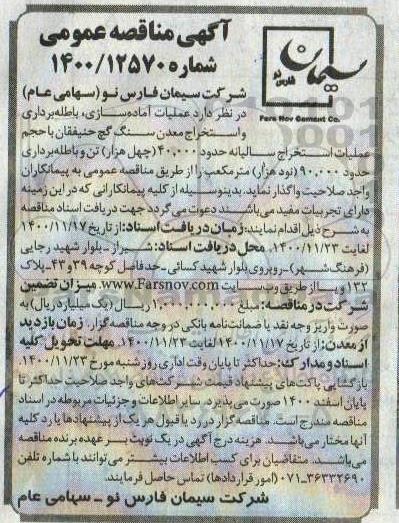 آگهی مناقصه عمومی
شماره ۱۴۰۰/۱۲۵۷۰
سیمان
فارس نو
Fars Nov Cement Co.
شرکت سیمان فارس نو (سهامی عام)
در نظر دارد عملیات آماده‌سازی، باطله‌برداری
و استخراج معدن سنگ گچ حنیفقان با حجم
عملیات استخراج سالیانه حدود ۴۰,۰۰۰ (چهل هزار) تن و باطله‌برداری
حدود ۹۰,۰۰۰ (نود هزار) مترمکعب را از طریق مناقصه عمومی به پیمانکاران
واجد صلاحیت واگذار نماید. بدینوسیله از کلیه پیمانکارانی که در این زمینه
دارای تجربیات مفید می‌باشند دعوت می‌گردد جهت دریافت اسناد مناقصه
به شرح ذیل اقدام نمایند: زمان دریافت اسناد: از تاریخ ۱۴۰۰/۱۱/۱۷
لغایت ۱۴۰۰/۱۱/۲۳. محل دریافت اسناد: شیراز- بلوار شهید رجایی
(فرهنگ شهر)- روبروی بلوار شهید کسائی- حدفاصل کوچه ۳۹ و ۴۳- پلاک
۱۳۲ و یا از طریق وب سایت www.Farsnov.com. میزان تضمین
شرکت در مناقصه: مبلغ ۱,۰۰۰,۰۰۰,۰۰۰ ریال (یک میلیارد ریال) به
صورت واریز وجه نقد یا ضمانت‌نامه بانکی در وجه مناقصه‌گزار. زمان بازدید
از معدن: از تاریخ ۱۴۰۰/۱۱/۱۷ لغایت ۱۴۰۰/۱۱/۲۳. مهلت تحویل کلیه
اسناد و مدارک: حداکثر تا پایان وقت اداری روز شنبه مورخ ۱۴۰۰/۱۱/۲۳
بازگشایی پاکت‌های پیشنهاد قیمت شرکت‌های واجد صلاحیت حداکثر تا
پایان اسفند ۱۴۰۰ صورت می‌پذیرد. سایر اطلاعات و جزئیات مربوطه در اسناد
مناقصه مندرج است. مناقصه‌گزار در رد یا قبول هر یک از پیشنهادها یا رد کلیه
آنها مختار می‌باشد. هزینه درج آگهی در یک نوبت بر عهده برنده مناقصه
می‌باشد. متقاضیان برای کسب اطلاعات بیشتر می‌توانند با شماره تلفن
۳۶۳۳۲۶۹۰-۰۷۱ (امور قراردادها) تماس حاصل فرمایند.
شرکت سیمان فارس نو - سهامی عام